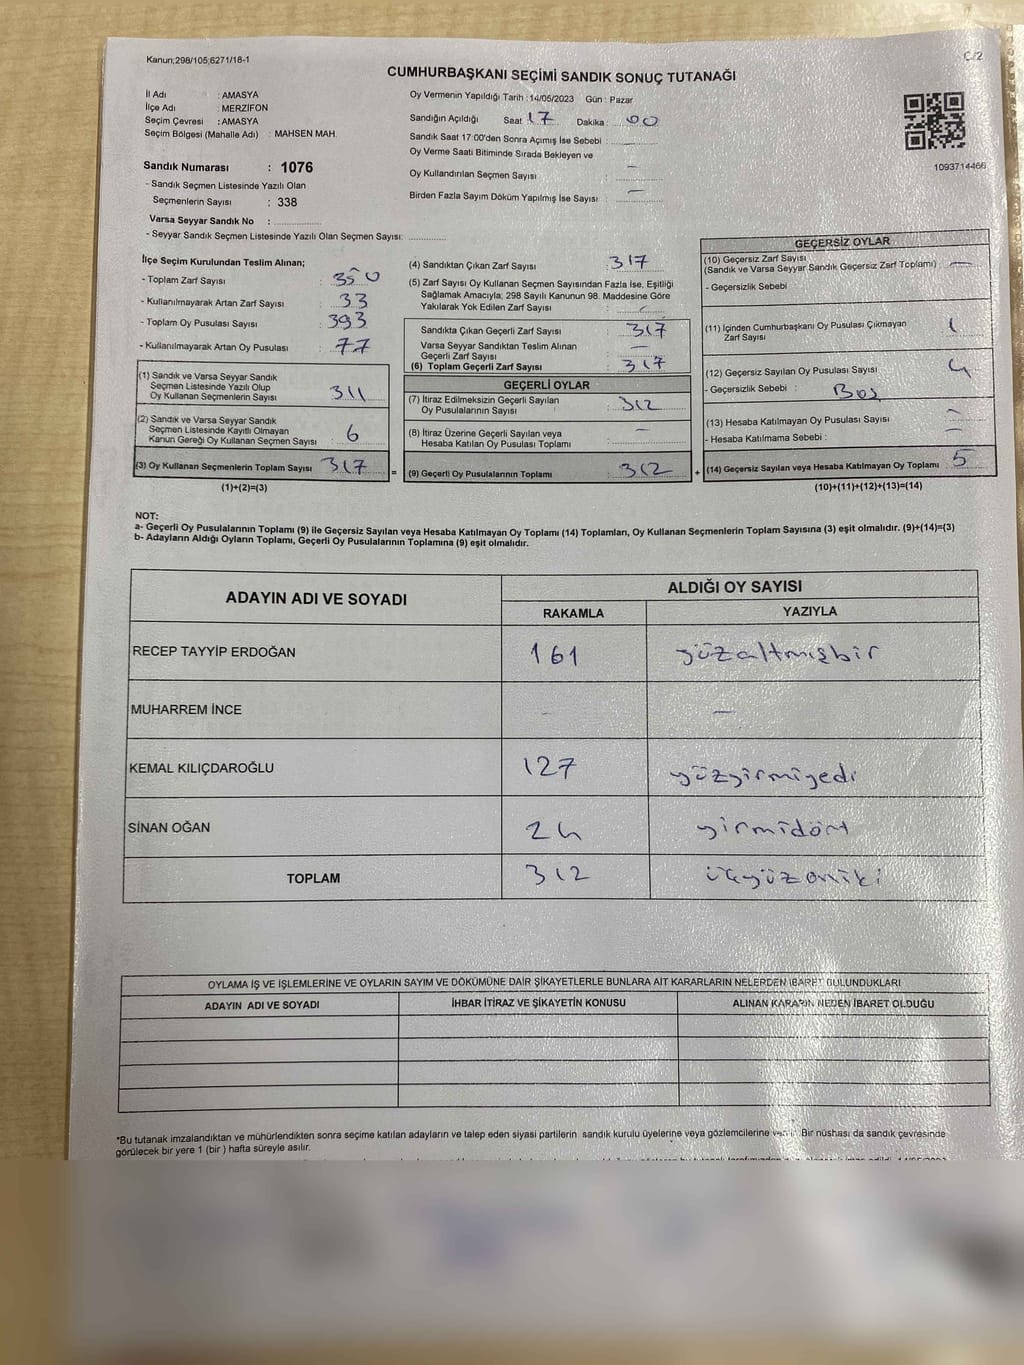 Kanun;298/105;6271/18-1
C/2
CUMHURBAŞKANI SEÇİMİ SANDIK SONUÇ TUTANAĞI
İl Adı : AMASYA
İlçe Adı : MERZİFON
Seçim Çevresi : AMASYA
Seçim Bölgesi (Mahalle Adı) : MAHSEN MAH.
Sandık Numarası : 1076
- Sandık Seçmen Listesinde Yazılı Olan
Seçmenlerin Sayısı : 338
Varsa Seyyar Sandık No : ................
- Seyyar Sandık Seçmen Listesinde Yazılı Olan Seçmen Sayısı: ............
Oy Vermenin Yapıldığı Tarih : 14/05/2023 Gün : Pazar
Sandığın Açıldığı Saat 17 Dakika : 00
Sandık Saat 17:00'den Sonra Açımış İse Sebebi : –
Oy Verme Saati Bitiminde Sırada Bekleyen ve
Oy Kullandırılan Seçmen Sayısı : –
Birden Fazla Sayım Döküm Yapılmış İse Sayısı : –
1093714466
İlçe Seçim Kurulundan Teslim Alınan;
- Toplam Zarf Sayısı : 350
- Kullanılmayarak Artan Zarf Sayısı : 33
- Toplam Oy Pusulası Sayısı : 393
- Kullanılmayarak Artan Oy Pusulası : 77
(1) Sandık ve Varsa Seyyar Sandık
Seçmen Listesinde Yazılı Olup
Oy Kullanan Seçmenlerin Sayısı : 311
(2) Sandık ve Varsa Seyyar Sandık
Seçmen Listesinde Kayıtlı Olmayan
Kanun Gereği Oy Kullanan Seçmen Sayısı : 6
(3) Oy Kullanan Seçmenlerin Toplam Sayısı : 317
(1)+(2)=(3)
=
(4) Sandıktan Çıkan Zarf Sayısı : 317
(5) Zarf Sayısı Oy Kullanan Seçmen Sayısından Fazla İse, Eşitliği
Sağlamak Amacıyla; 298 Sayılı Kanunun 98. Maddesine Göre
Yakılarak Yok Edilen Zarf Sayısı :
Sandıkta Çıkan Geçerli Zarf Sayısı : 317
Varsa Seyyar Sandıktan Teslim Alınan
Geçerli Zarf Sayısı : –
(6) Toplam Geçerli Zarf Sayısı : 317
GEÇERLİ OYLAR
(7) İtiraz Edilmeksizin Geçerli Sayılan
Oy Pusulalarının Sayısı : 312
(8) İtiraz Üzerine Geçerli Sayılan veya
Hesaba Katılan Oy Pusulası Toplamı : –
(9) Geçerli Oy Pusulalarının Toplamı : 312
+
GEÇERSİZ OYLAR
(10) Geçersiz Zarf Sayısı
(Sandık ve Varsa Seyyar Sandık Geçersiz Zarf Toplamı) : –
- Geçersizlik Sebebi
(11) İçinden Cumhurbaşkanı Oy Pusulası Çıkmayan
Zarf Sayısı : 1
(12) Geçersiz Sayılan Oy Pusulası Sayısı : 4
- Geçersizlik Sebebi : Boş
(13) Hesaba Katılmayan Oy Pusulası Sayısı : –
- Hesaba Katılmama Sebebi : –
(14) Geçersiz Sayılan veya Hesaba Katılmayan Oy Toplamı : 5
(10)+(11)+(12)+(13)=(14)
NOT:
a- Geçerli Oy Pusulalarının Toplamı (9) ile Geçersiz Sayılan veya Hesaba Katılmayan Oy Toplamı (14) Toplamları, Oy Kullanan Seçmenlerin Toplam Sayısına (3) eşit olmalıdır. (9)+(14)=(3)
b- Adayların Aldığı Oyların Toplamı, Geçerli Oy Pusulalarının Toplamına (9) eşit olmalıdır.
ADAYIN ADI VE SOYADI
ALDIĞI OY SAYISI
RAKAMLA YAZIYLA
RECEP TAYYİP ERDOĞAN 161 yüzaltmışbir
MUHARREM İNCE – –
KEMAL KILIÇDAROĞLU 127 yüzyirmiyedi
SİNAN OĞAN 24 yirmidört
TOPLAM 312 üçyüzoniki
OYLAMA İŞ VE İŞLEMLERİNE VE OYLARIN SAYIM VE DÖKÜMÜNE DAİR ŞİKAYETLERLE BUNLARA AİT KARARLARIN NELERDEN İBARET BULUNDUKLARI
ADAYIN ADI VE SOYADI İHBAR İTİRAZ VE ŞİKAYETİN KONUSU ALINAN KARARIN NEDEN İBARET OLDUĞU
*Bu tutanak imzalandıktan ve mühürlendikten sonra seçime katılan adayların ve talep eden siyasi partilerin sandık kurulu üyelerine veya gözlemcilerine Bir nüshası da sandık çevresinde
görülecek bir yere 1 (bir ) hafta süreyle asılır.